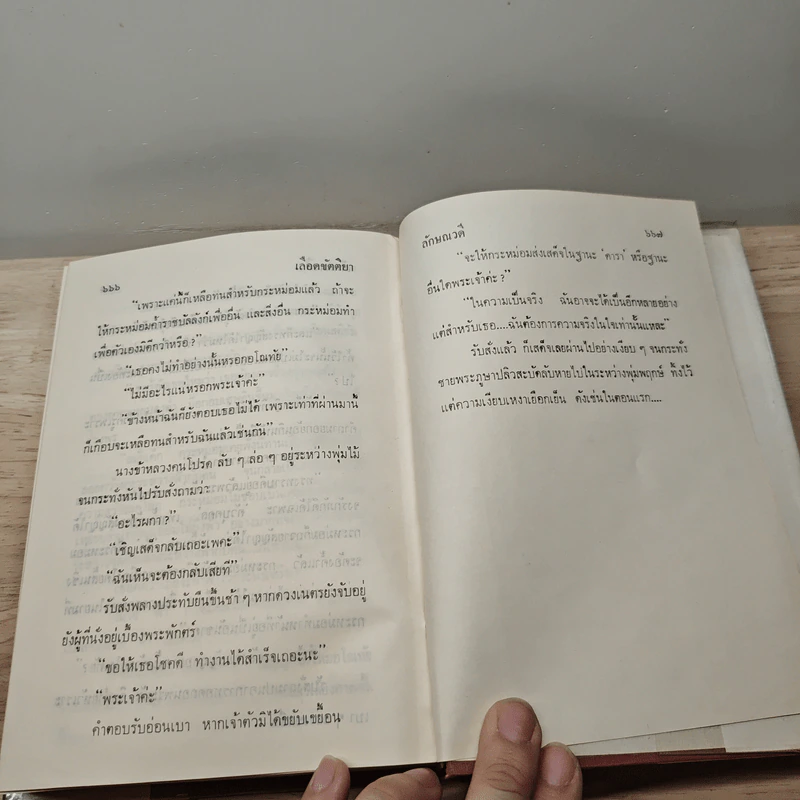 ๖๖๖ เลือดขัตติยา
“เพราะแค่นี้ก็เหลือทนสำหรับกระหม่อมแล้ว ถ้าจะ
ให้กระหม่อมค้าราชบัลลังก์เพื่ออื่น และสิ่งอื่น กระหม่อมทำ
เพื่อตัวเองมิดีกว่าหรือ ?”
“เธอคงไม่ทำอย่างนั้นหรอกอโณทัย”
“ไม่มีอะไรแน่หรอกพระเจ้าค่ะ”
“ข้างหน้าฉันก็ยังตอบเธอไม่ได้ เพราะเท่าที่ผ่านมานี้
ก็เกือบจะเหลือทนสำหรับฉันแล้วเช่นกัน”
นางข้าหลวงคนโปรด ลับ ๆ ล่อ ๆ อยู่ระหว่างพุ่มไม้
จนกระทั่งหันไปรับสั่งถามว่า
“อะไรผกา ?”
“เชิญเสด็จกลับเถอะเพคะ”
“ฉันเห็นจะต้องกลับเสียที”
รับสั่งพลางประทับยืนขึ้นช้า ๆ หากดวงเนตรยังจับอยู่
ยังผู้ที่นั่งอยู่เบื้องพระพักตร์
“ขอให้เธอโชคดี ทำงานได้สำเร็จเถอะนะ”
“พระเจ้าค่ะ”
คำตอบรับอ่อนเบา หากเจ้าตัวมิได้ขยับเขยื้อน
ลักษณวดี ๖๖๗
“จะให้กระหม่อมส่งเสด็จในฐานะ ‘ดารา’ หรือฐานะ
อื่นใดพระเจ้าค่ะ ?”
“ในความเป็นจริง ฉันอาจจะได้เป็นอีกหลายอย่าง
แต่สำหรับเธอ....ฉันต้องการความจริงในใจเท่านั้นแหละ”
รับสั่งแล้ว ก็เสด็จเลยผ่านไปอย่างเงียบ ๆ จนกระทั่ง
ชายพระภูษาปลิวสะบัดลับหายไปในระหว่างพุ่มพฤกษ์ ทิ้งไว้
แต่ความเงียบเหงาเยือกเย็น ดังเช่นในตอนแรก....